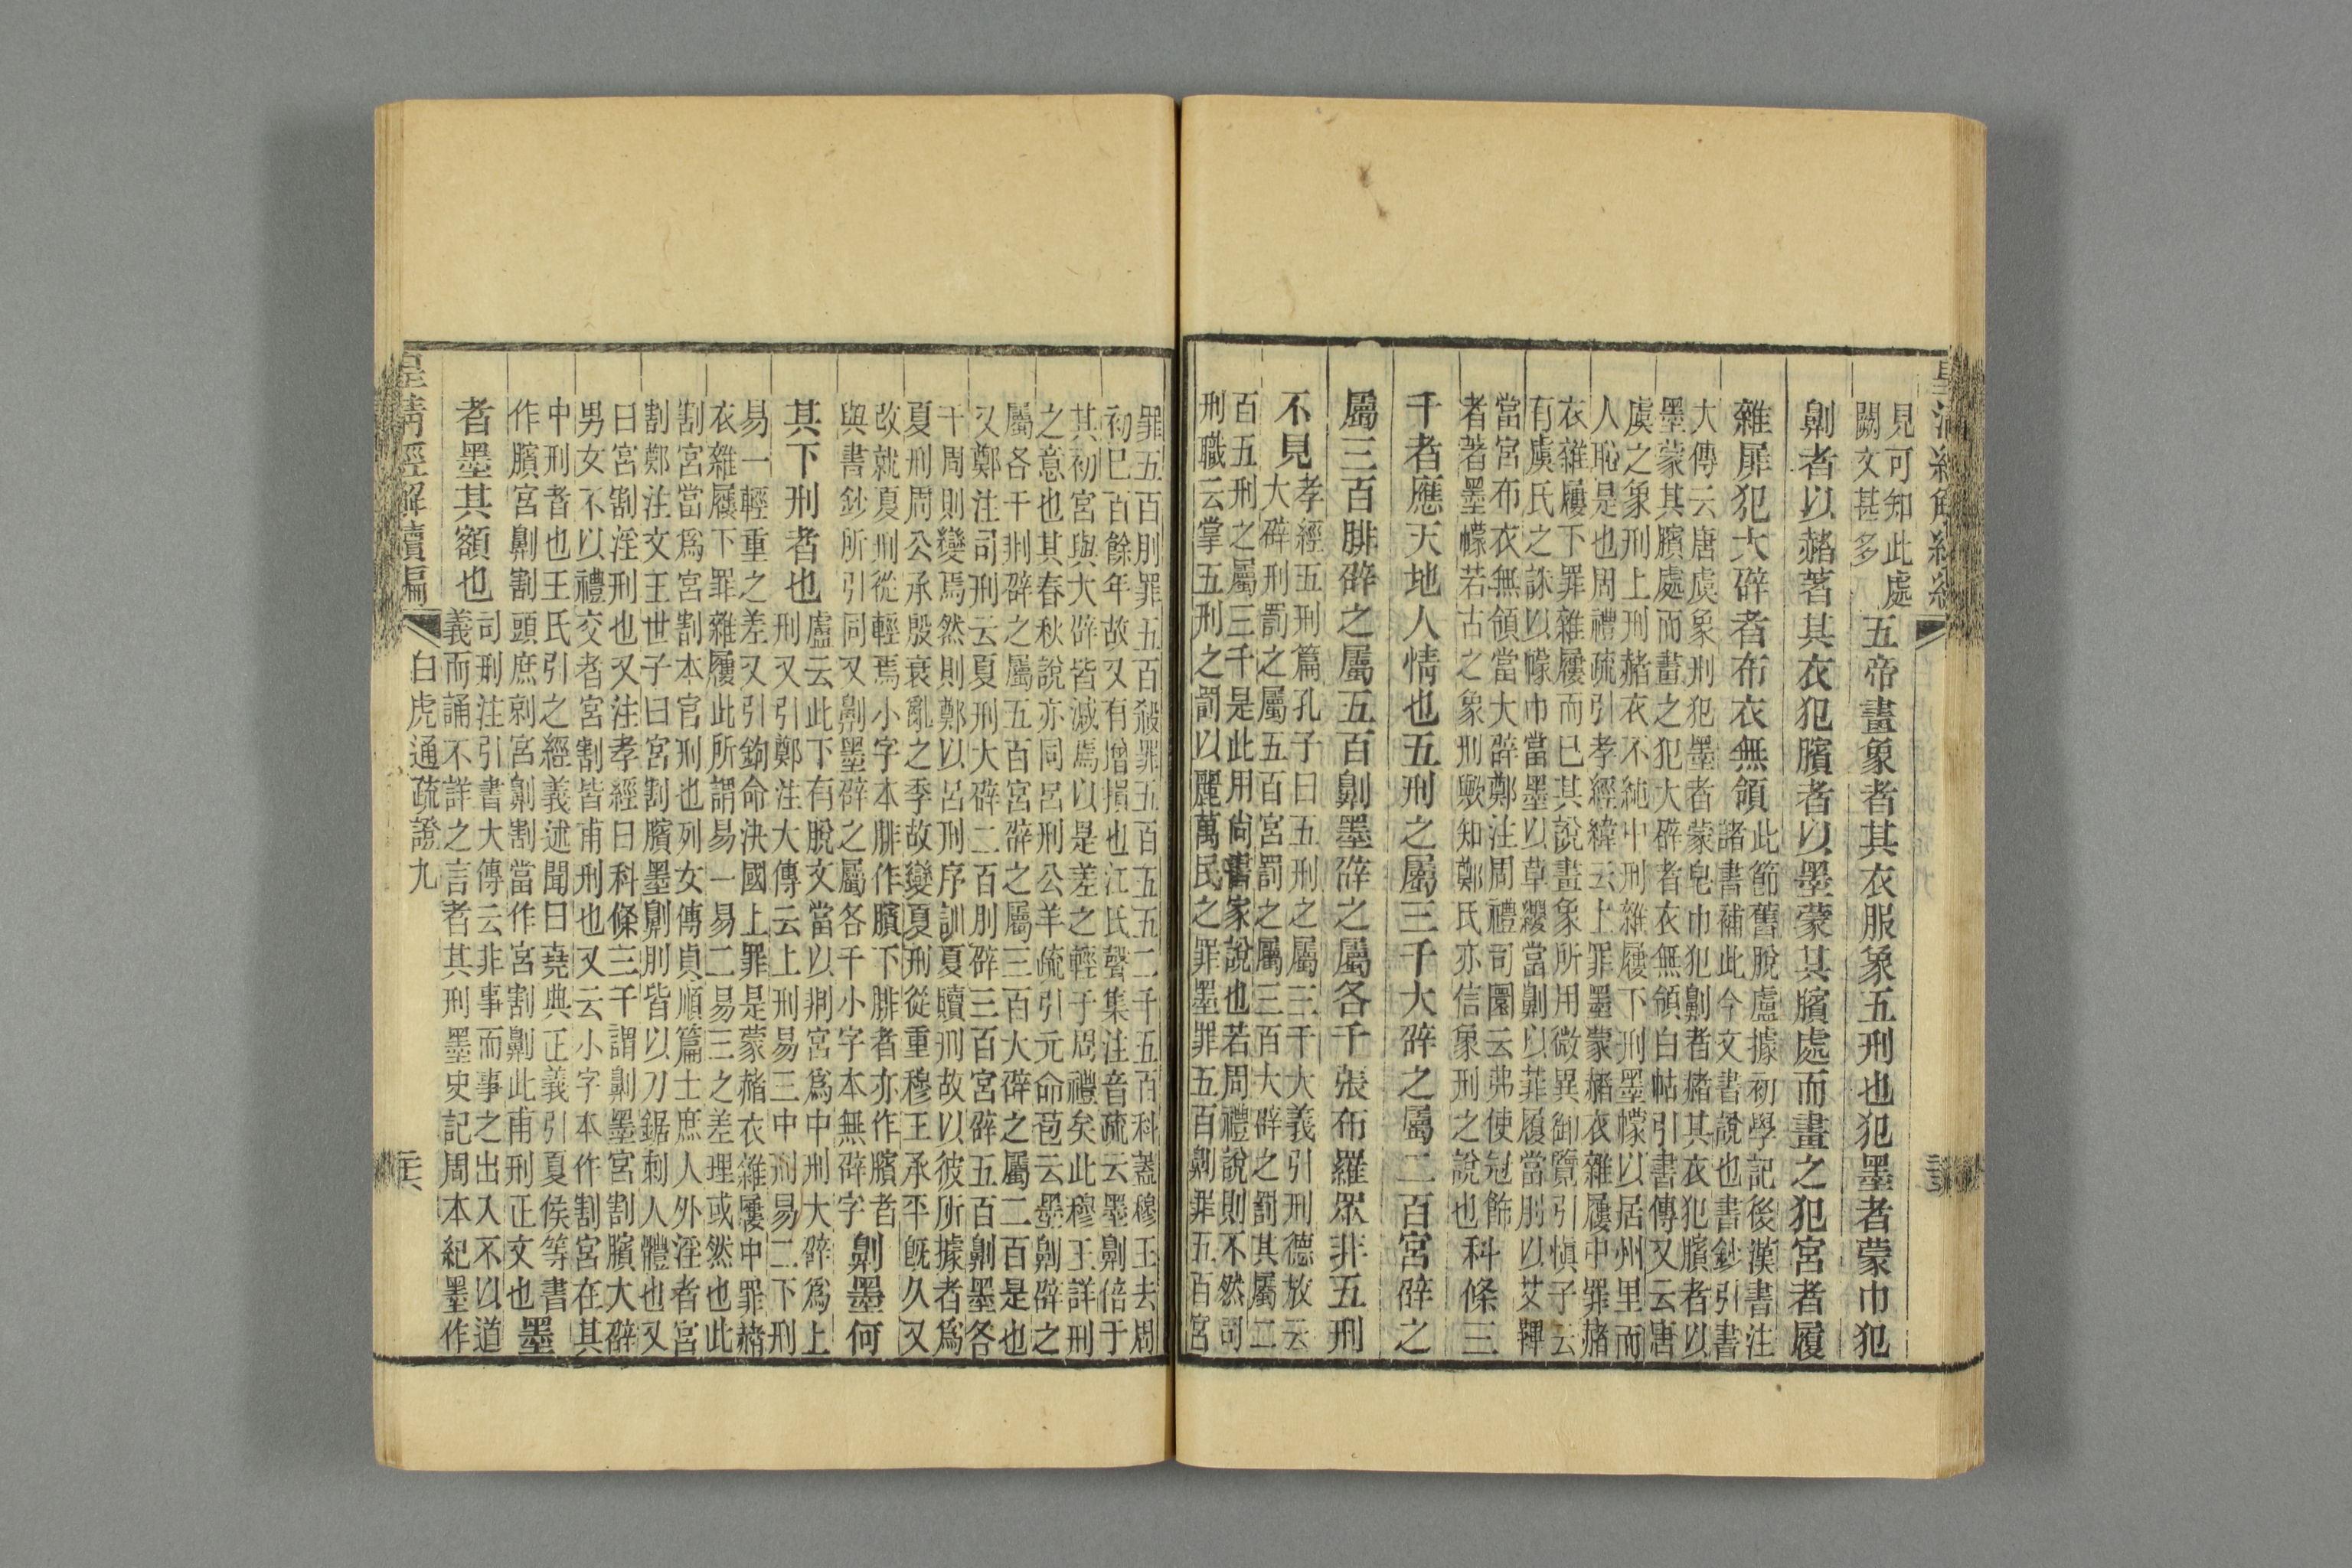 見可知此處
闕文甚多
五帝畫象者其衣服象五刑也犯墨者蒙巾犯
劓者以赭著其衣犯臏者以墨蒙其臏處而畫之犯宮者履
雜屝犯大辟者布衣無領
此節舊脫盧據初學記後漢書注
諸書補此今文書說也書鈔引書
大傳云唐虞象刑犯墨者蒙皂巾犯劓者赭其衣犯臏者以
墨蒙其臏處而畫之犯大辟者衣無領白帖引書傳又云唐
虞之象刑上刑赭衣不純中刑雜屨下刑墨幪以居州里而
人恥是也周禮疏引孝經緯云上罪墨蒙赭衣雜屨中罪赭
衣雜屨下罪雜屨而已其說畫象所用微異御覽引愼子云
有虞氏之誅以幪巾當墨以草纓當劓以菲履當刖以艾韠
當宮布衣無領當大辟鄭注周禮司圜云弗使冠飾
者著墨幪若古之象刑歟知鄭氏亦信象刑之說也
科條三
千者應天地人情也五刑之屬三千大辟之屬二百宮辟之
屬三百腓辟之屬五百劓墨辟之屬各千張布羅眾非五刑
不見
孝經五刑篇孔子曰五刑之屬三千大義引刑德放云
大辟刑罰之屬五百宮罰之屬三百大辟之罰其屬二
百五刑之屬三千是此用尙書家說也若周禮說則不然司
刑職云掌五刑之罰以麗萬民之罪墨罪五百劓罪五百宮
罪五百刖罪五百殺罪五百五五二千五百科蓋穆王去周
初已百餘年故又有增損也江氏聲集注音疏云墨劓倍于
其初宮與大辟皆減焉以是差之輕于周禮矣此穆王詳刑
之意也其春秋說亦同呂刑公羊疏引元命苞云墨劓辟之
屬各千剕辟之屬五百宮辟之屬三百大辟之屬二百是也
又鄭注司刑云夏刑大辟二百刖辟三百宮辟五百劓墨各
千周則變焉然則鄭以呂刑序訓夏贖刑故以彼所據者爲
夏刑周公承殷衰亂之季故變夏刑從重穆王承平旣久又
改就夏刑從輕焉小字本腓作臏下腓者亦作臏者
與書鈔所引同又劓墨辟之屬各千小字本無辟字
劓墨何
其下刑者也
盧云此下有脫文當以剕宮爲中刑大辟爲上
刑又引鄭注大傳云上刑易三中刑易二下刑
易一輕重之差又引鉤命決國上罪是蒙赭衣雜屨中罪赭
衣雜屨下罪雜屨此所謂易一易二易三之差理或然也此
割宮當爲宮割本官刑也列女傳貞順篇士庶人外淫者宮
割鄭注文王世子曰宮割臏墨劓刖皆以刀鋸刺人體也又
曰宮割淫刑也又注孝經曰科條三千謂劓墨宮割臏大辟
男女不以禮交者宮割皆甫刑也又云小字本作割宮在其
中刑者也王氏引之經義述聞曰堯典正義引夏侯等書
作臏宮劓割頭庶剠宮劓割當作宮割劓此甫刑正文也
墨
者墨其額也
司刑注引書大傳云非事而事之出入不以道
義而誦不詳之言者其刑墨史記周本紀墨作
皇清經解續編
白虎通疏證九